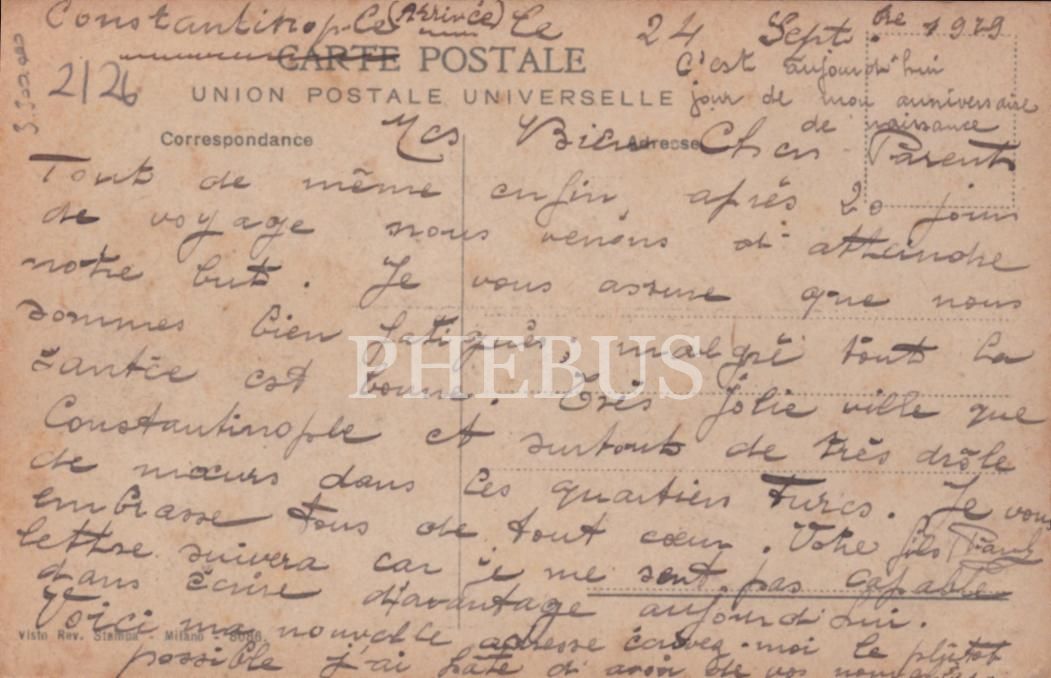 Constantinople (Arrivée) le 24 Septbre 1919
CARTE POSTALE
UNION POSTALE UNIVERSELLE
2/26
C'est aujourd'hui
jour de mon anniversaire
de naissance
Correspondance
Adresse
Mes Bien Chers Parents
Tout de même enfin, après 20 jours
de voyage nous venons d'atteindre
notre but. Je vous assure que nous
sommes bien fatigués, malgré tout la
santée est bonne. Très jolie ville que
Constantinople et surtout de très drôle
de mœurs dans les quartiers Turcs. Je vous
embrasse tous de tout cœur. Votre fils
lettre suivera car je me sent pas capable
dans écrire d'avantage aujourd'hui.
Voici ma nouvelle adresse écrivez-moi le plutôt
possible j'ai hâte d'avoir de vos
Visto Rev. Stampa Milano 8086.
PHEBUS